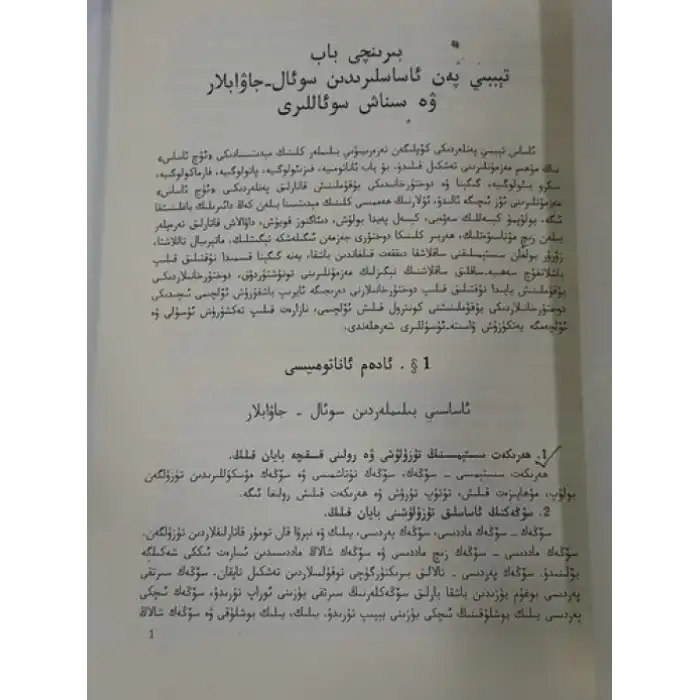 بىرىنچى باب
تېببىي پەن ئاساسلىرىدىن سوئال-جاۋابلار
ۋە سىناش سوئاللىرى
ئاساس تېببىي پەنلەردىكى كۆپلىگەن نەزەرىيىۋى بىلىملەر كلىنىك مېدىتسىنادىكى «ئۈچ ئاساس»
نىڭ مۇھىم مەزمۇنلىرىنى تەشكىل قىلىدۇ. بۇ باب ئاناتومىيە، فىزىئولوگىيە، پاتولوگىيە، فارماكولوگىيە،
مىكرو بىئولوگىيە، گىگېنا ۋە دوختۇرخانىدىكى يۇقۇملىنىش قاتارلىق پەنلەردىكى «ئۈچ ئاساس»
مەزمۇنلىرىنى ئۆز ئىچىگە ئالىدۇ، ئۇلارنىڭ ھەممىسى كلىنىك مېدىتسىنا بىلەن كەڭ دائىرىلىك باغلىنىشقا
ئىگە. بولۇپمۇ كېسەللىك سەۋەبى، كېسەل پەيدا بولۇش، دىئاگنوز قويۇش، داۋالاش قاتارلىق تەرەپلەر
بىلەن زىچ مۇناسىۋەتلىك، ھەربىر كلىنىكا دوختۇرى جەزمەن ئىگىلەشكە تېگىشلىك. ماتېرىيال تاللاشتا،
زۆرۈر بولغان سىستېمىلىقنى ساقلاشقا دىققەت قىلغاندىن باشقا، يەنە گىگېنا قىسمىدا نۇقتىلىق قىلىپ
باشلانغۇچ سەھىيە-ساقلىق ساقلاشنىڭ نېگىزلىك مەزمۇنلىرىنى تونۇشتۇردۇق، دوختۇرخانىلاردىكى
يۇقۇملىنىش بابىدا نۇقتىلىق قىلىپ دوختۇرخانىلارنى دەرىجىگە ئايرىپ باشقۇرۇش ئۆلچىمى ئىچىدىكى
دوختۇرخانىلاردىكى يۇقۇملىنىشنى كونترول قىلىش ئۆلچىمى، نازارەت قىلىپ تەكشۈرۈش ئۇسۇلى ۋە
ئۆلچەمگە يەتكۈزۈش ۋاسىتە-ئۇسۇللىرى شەرھلەندى.
§ 1. ئادەم ئاناتومىيىسى
ئاساسىي بىلىملەردىن سوئال - جاۋابلار
1. ھەرىكەت سىستېمىسىنىڭ تۈزۈلۈشى ۋە رولىنى قىسقىچە بايان قىلىڭ.
ھەرىكەت سىستېمىسى – سۆڭەك، سۆڭەك تۇتاشمىسى ۋە سۆڭەك مۇسكۇللىرىدىن تۈزۈلگەن
بولۇپ، مۇھاپىزەت قىلىش، تۇتۇپ تۇرۇش ۋە ھەرىكەت قىلىش رولىغا ئىگە.
2. سۆڭەكنىڭ ئاساسلىق تۈزۈلۈشىنى بايان قىلىڭ.
سۆڭەك – سۆڭەك ماددىسى، سۆڭەك پەردىسى، يىلىك ۋە نېرۋا قان تومۇر قاتارلىقلاردىن تۈزۈلگەن.
سۆڭەك ماددىسى – سۆڭەك زىچ ماددىسى ۋە سۆڭەك شالاڭ ماددىسىدىن ئىبارەت ئىككى شەكىلگە
بۆلىنىدۇ. سۆڭەك پەردىسى – تالالىق بىرىكتۈرگۈچى توقۇلمىلاردىن تەشكىل تاپقان. سۆڭەك سىرتقى
پەردىسى بوغۇم يۈزىدىن باشقا بارلىق سۆڭەكلەرنىڭ سىرتقى يۈزىنى ئوراپ تۇرىدۇ، سۆڭەك ئىچكى
پەردىسى يىلىك بوشلۇقىنىڭ ئىچكى يۈزىنى يېپىپ تۇرىدۇ. يىلىك، يىلىك بوشلۇقى ۋە سۆڭەك شالاڭ
1